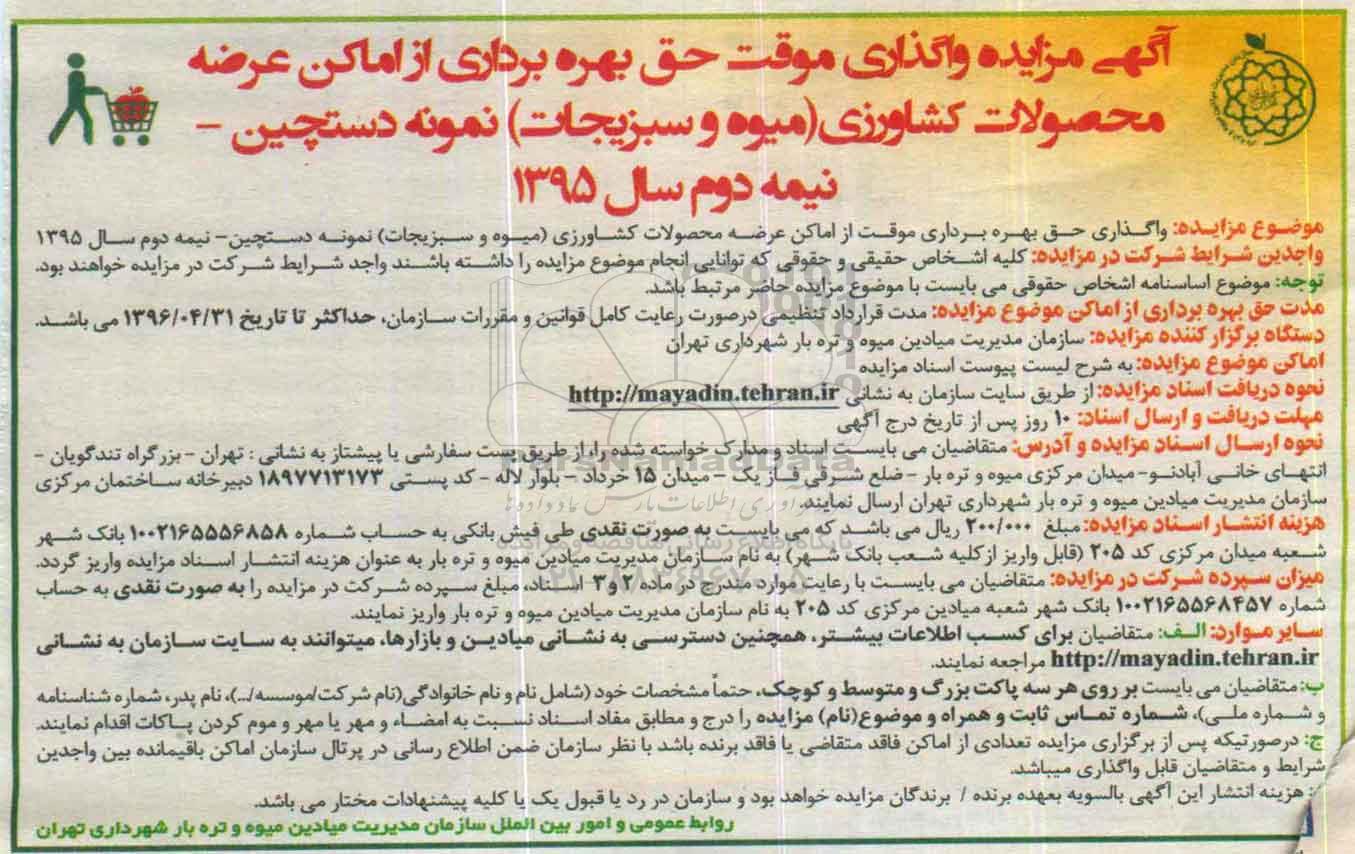 آگهی مزایده واگذاری موقت حق بهره برداری از اماکن عرضه
محصولات کشاورزی (میوه و سبزیجات) نمونه دستچین –
نیمه دوم سال ۱۳۹۵
موضوع مزایده: واگذاری حق بهره برداری موقت از اماکن عرضه محصولات کشاورزی (میوه و سبزیجات) نمونه دستچین- نیمه دوم سال ۱۳۹۵
واجدین شرایط شرکت در مزایده: کلیه اشخاص حقیقی و حقوقی که توانایی انجام موضوع مزایده را داشته باشند واجد شرایط شرکت در مزایده خواهند بود.
توجه: موضوع اساسنامه اشخاص حقوقی می بایست با موضوع مزایده حاضر مرتبط باشد.
مدت حق بهره برداری از اماکن موضوع مزایده: مدت قرارداد تنظیمی درصورت رعایت کامل قوانین و مقررات سازمان، حداکثر تا تاریخ ۱۳۹۶/۰۴/۳۱ می باشد.
دستگاه برگزار کننده مزایده: سازمان مدیریت میادین میوه و تره بار شهرداری تهران
اماکن موضوع مزایده: به شرح لیست پیوست اسناد مزایده
نحوه دریافت اسناد مزایده: از طریق سایت سازمان به نشانی http://mayadin.tehran.ir
مهلت دریافت و ارسال اسناد: ۱۰ روز پس از تاریخ درج آگهی
نحوه ارسال اسناد مزایده و آدرس: متقاضیان می بایست اسناد و مدارک خواسته شده را، از طریق پست سفارشی یا پیشتاز به نشانی : تهران - بزرگراه تندگویان -
انتهای خانی آبادنو- میدان مرکزی میوه و تره بار - ضلع شرقی فاز یک - میدان ۱۵ خرداد - بلوار لاله - کد پستی ۱۸۹۷۷۱۳۱۷۳ دبیرخانه ساختمان مرکزی
سازمان مدیریت میادین میوه و تره بار شهرداری تهران ارسال نمایند.
هزینه انتشار اسناد مزایده: مبلغ ۲۰۰/۰۰۰ ریال می باشد که می بایست به صورت نقدی طی فیش بانکی به حساب شماره ۱۰۰۲۱۶۵۵۵۶۸۵۸ بانک شهر
شعبه میدان مرکزی کد ۲۰۵ (قابل واریز از کلیه شعب بانک شهر) به نام سازمان مدیریت میادین میوه و تره بار به عنوان هزینه انتشار اسناد مزایده واریز گردد.
میزان سپرده شرکت در مزایده: متقاضیان می بایست با رعایت موارد مندرج در ماده ۲ و ۳ اسناد، مبلغ سپرده شرکت در مزایده را به صورت نقدی به حساب
شماره ۱۰۰۲۱۶۵۵۶۸۴۵۷ بانک شهر شعبه میادین مرکزی کد ۲۰۵ به نام سازمان مدیریت میادین میوه و تره بار واریز نمایند.
سایر موارد: الف: متقاضیان برای کسب اطلاعات بیشتر، همچنین دسترسی به نشانی میادین و بازارها، میتوانند به سایت سازمان به نشانی
http://mayadin.tehran.ir مراجعه نمایند.
ب: متقاضیان می بایست بر روی هر سه پاکت بزرگ و متوسط و کوچک، حتماً مشخصات خود (شامل نام و نام خانوادگی (نام شرکت/موسسه/...)، نام پدر، شماره شناسنامه
و شماره ملی)، شماره تماس ثابت و همراه و موضوع (نام) مزایده را درج و مطابق مفاد اسناد نسبت به امضاء و مهر یا مهر و موم کردن پاکات اقدام نمایند.
ج: درصورتیکه پس از برگزاری مزایده تعدادی از اماکن فاقد متقاضی یا فاقد برنده باشد با نظر سازمان ضمن اطلاع رسانی در پرتال سازمان اماکن باقیمانده بین واجدین
شرایط و متقاضیان قابل واگذاری میباشد.
: هزینه انتشار این آگهی بالسویه بعهده برنده / برندگان مزایده خواهد بود و سازمان در رد یا قبول یک یا کلیه پیشنهادات مختار می باشد.
روابط عمومی و امور بین الملل سازمان مدیریت میادین میوه و تره بار شهرداری تهران
ParsNamadData